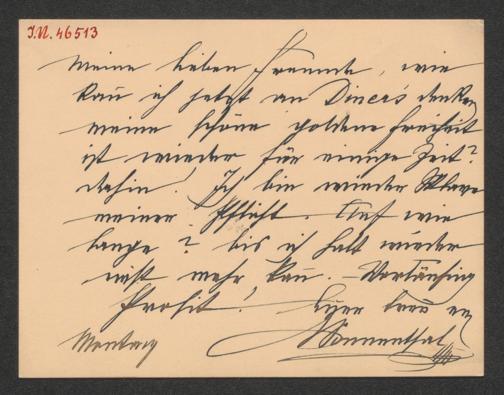 I.N. 46513
Meine lieben Freunde, wie
kann ich jetzt an Diner's denken
meine schöne goldene Freiheit
ist wieder für einige Zeit?
dahin! Ich bin wieder Sklave
meiner Pflicht. Auf wie
lange? bis ich halt wieder
nicht mehr kann. – Vorläufig
Prosit! Euer treu
Sonnenthal
Montag